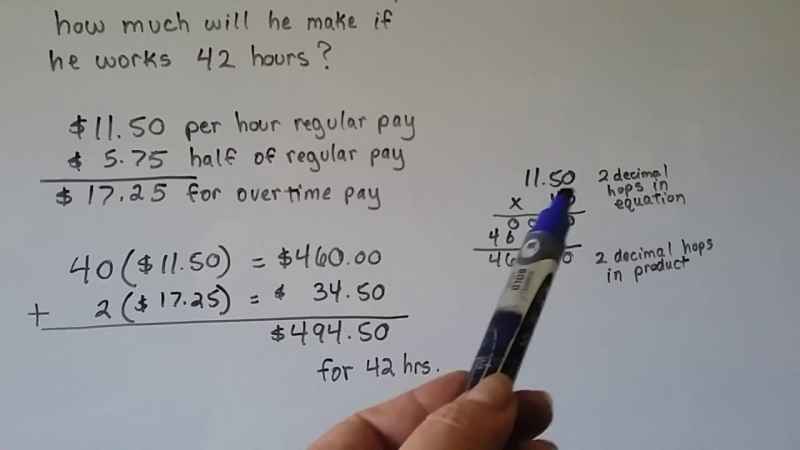 how much will he make if
he works 42 hours?
$11.50 per hour regular pay
$ 5.75 half of regular pay
$ 17.25 for overtime pay
40 ($11.50) = $460.00
+ 2 ($17.25) = $ 34.50
$494.50
for 42 hrs.
11.50
x
46
2 decimal
hops in
equation
2 decimal hops
in product